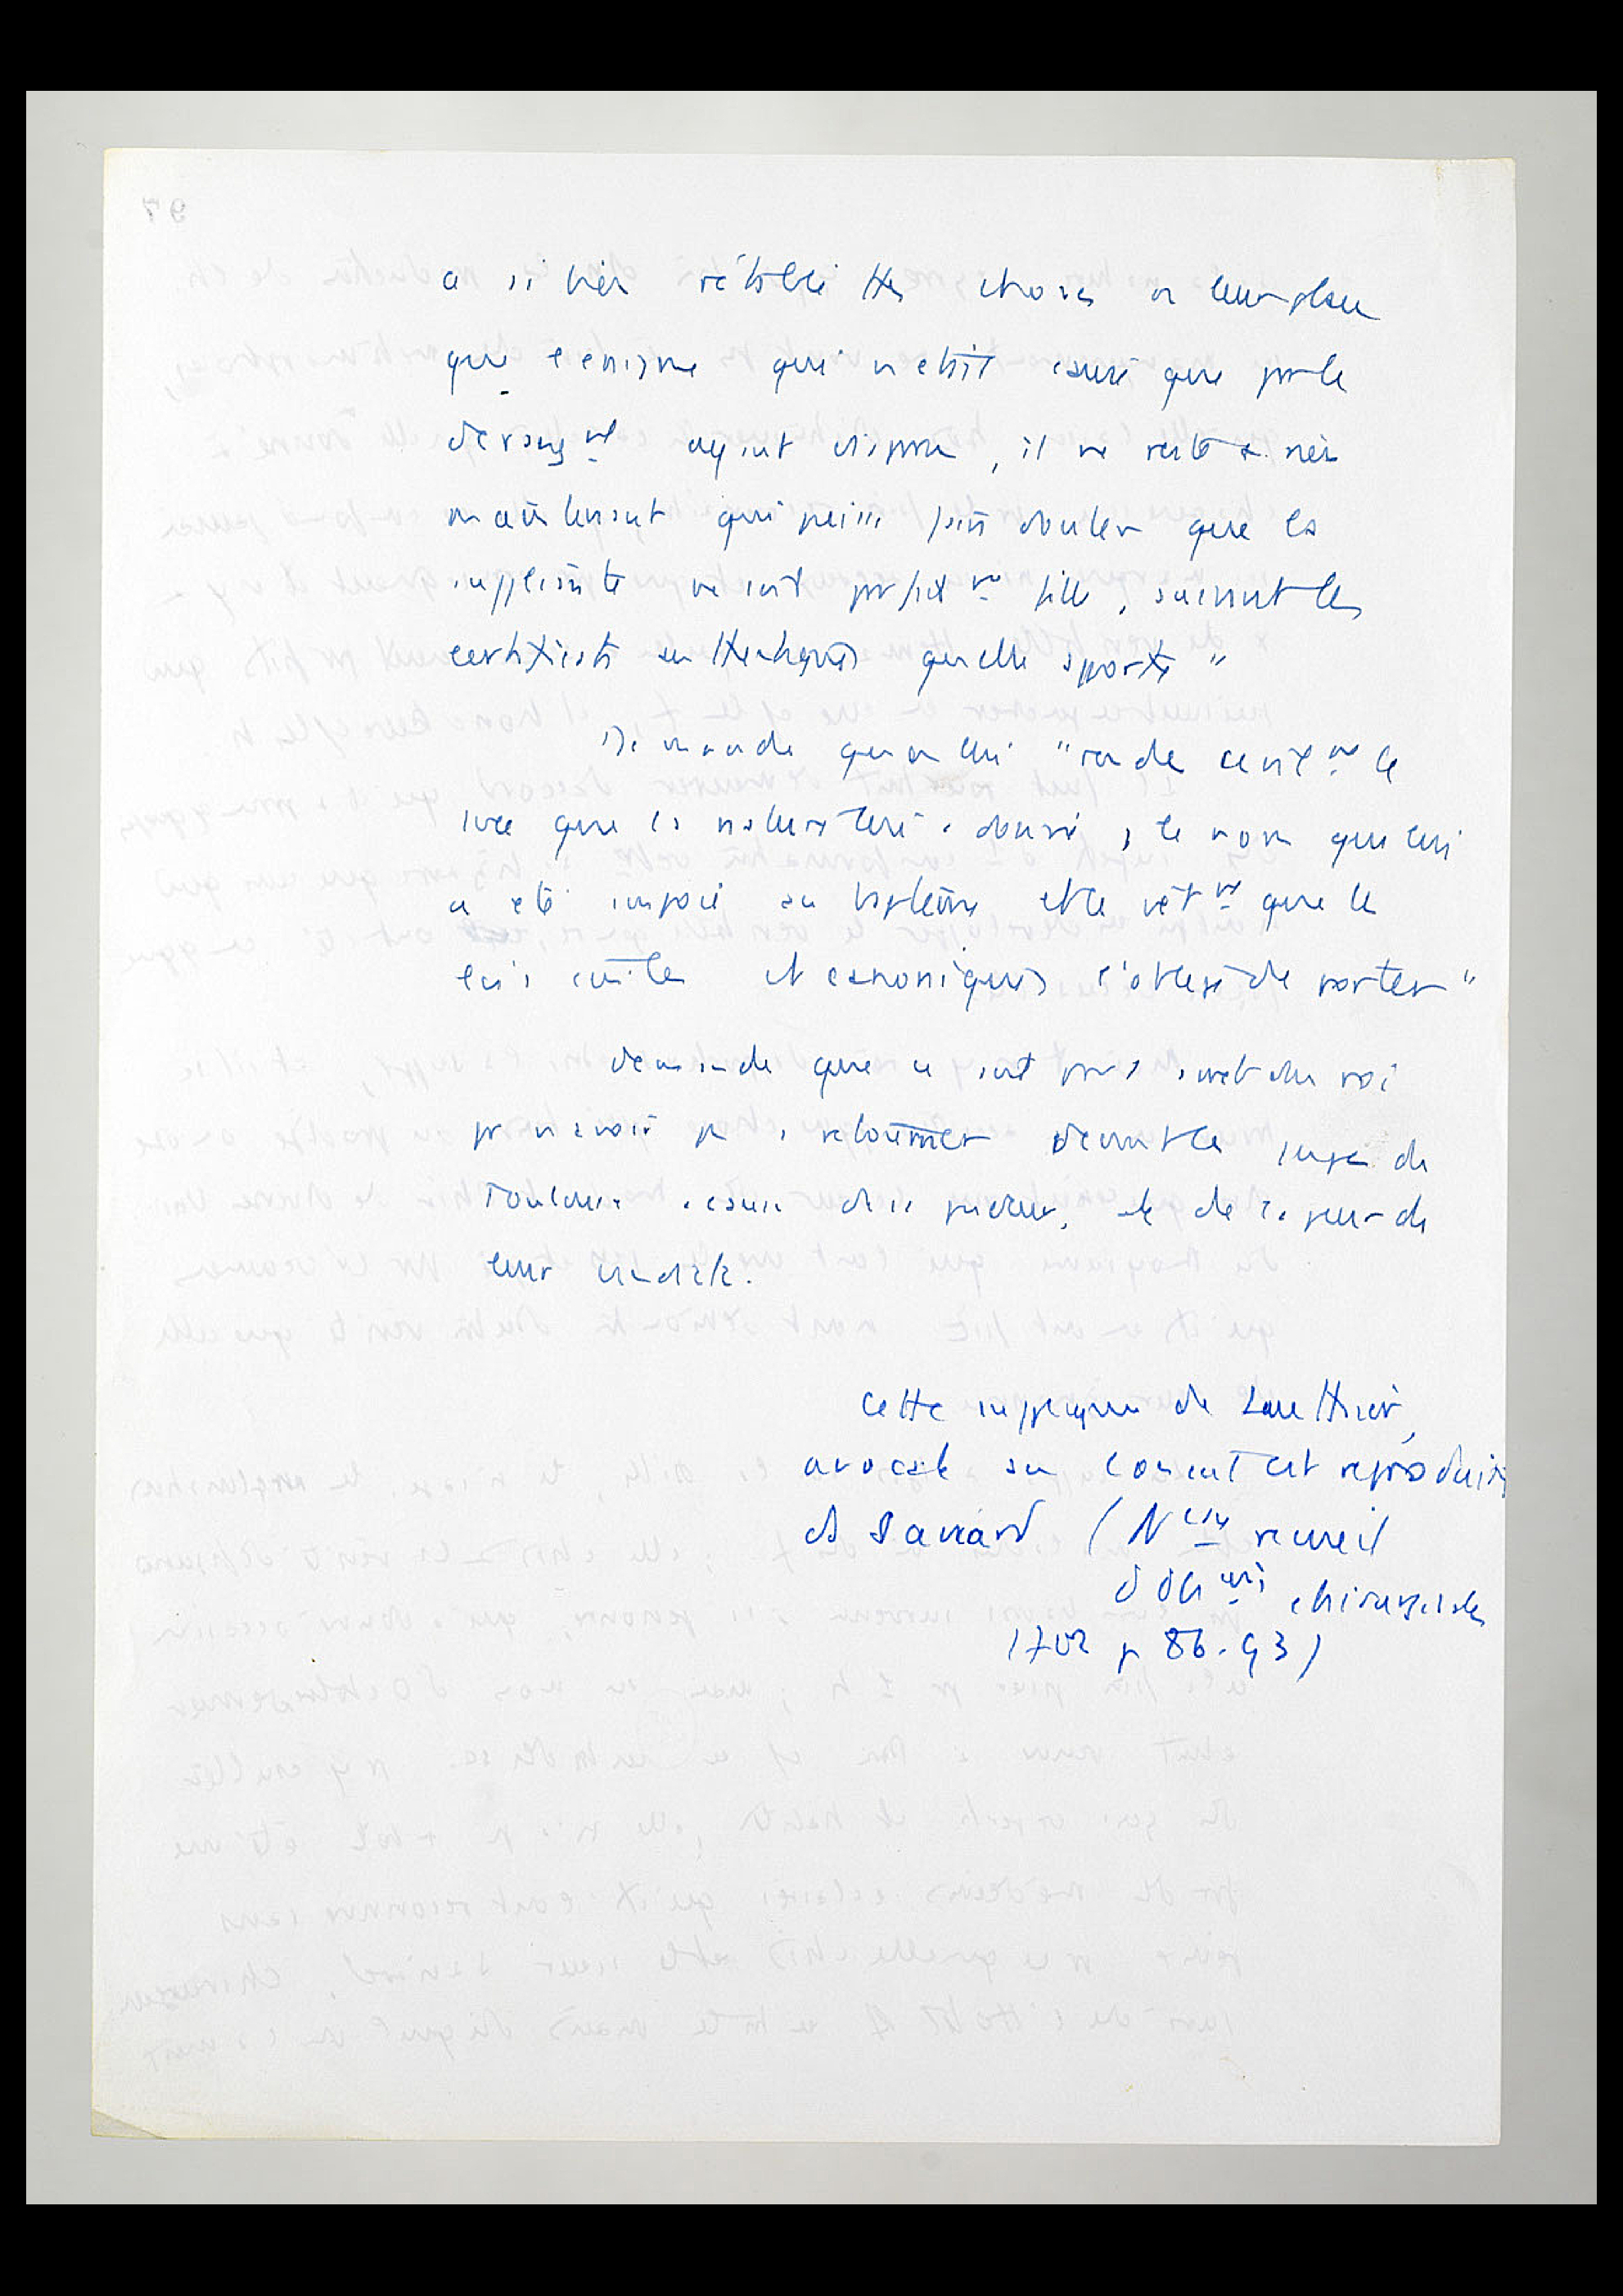 a si bien rétabli ttes choses en leur place
que l'enigme qui n'etait causé que par le
derangnt ayant disparu, il ne reste + rien
maintenant qui puisse faire douter que la
suppliante ne soit parfaitnt fille, suivant les
certificats authentiques qu'elle apporte"
Demande qu'on lui "rende le
sexe que la nature lui a donné, le nom qui lui
a été imposé au baptême et le vêtnt que les
lois civiles et canoniques l'obligent de porter"
demande que ce soit par arrêt du roi
pr n'avoir pas à retourner devant les juges de
Toulouse à cause de sa pudeur, et de la peur de
leur
Cette supplique de Lauthier,
avocat au Conseil est reproduite
ds Saviard (Nveau recueil
d'obsons chirurgicales
1702 p 86-93)